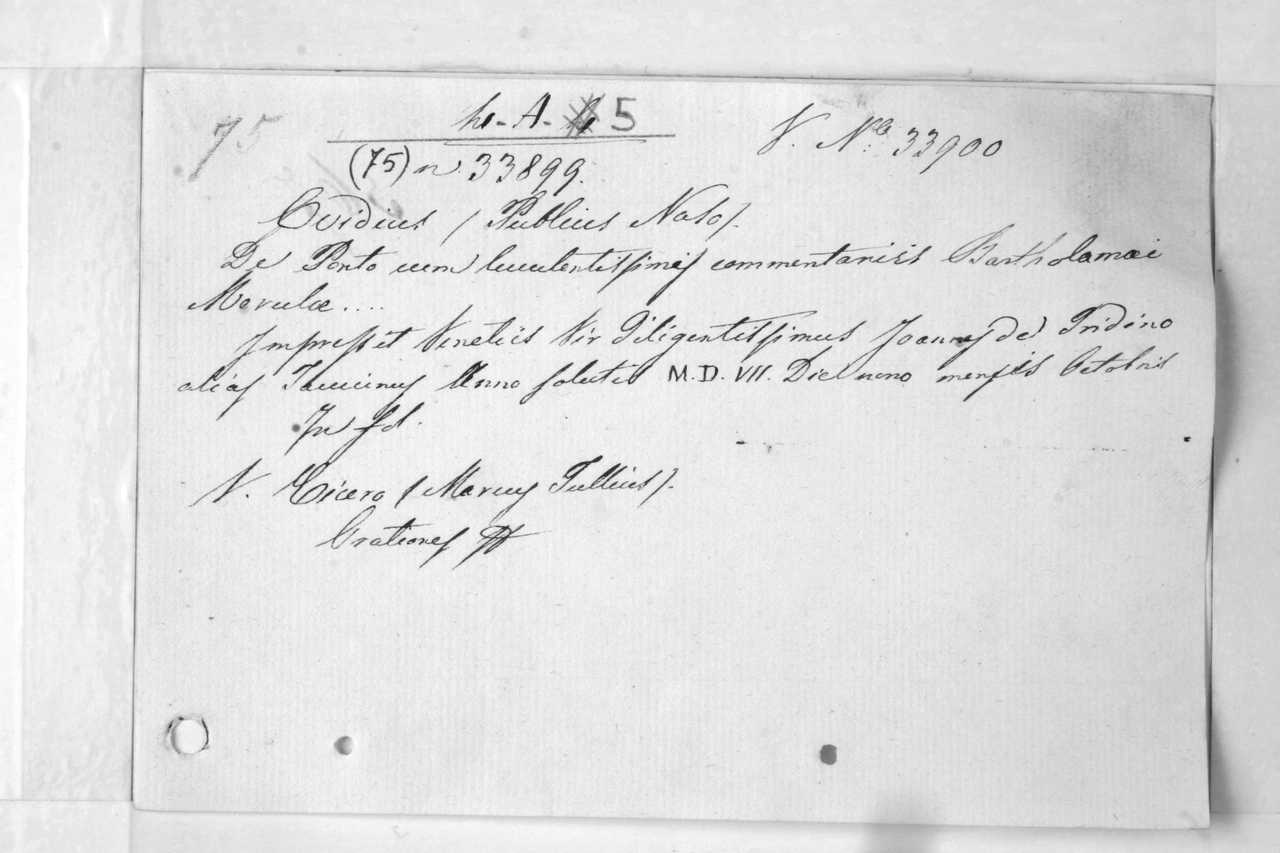 75
h. A. 5
V. Nro. 33900
(75) n. 33899.
Ovidius (Publius Naso).
De Ponto cum luculentissimis commentariis Bartholamæi
Merulæ....
Impressit Venetiis Vir diligentissimus Joannes de Tridino
alias Tacuinus Anno salutis M.D.VII. Die nono mensis Octobris
In fol.
V. Cicero (Marcus Tullius).
Orationes